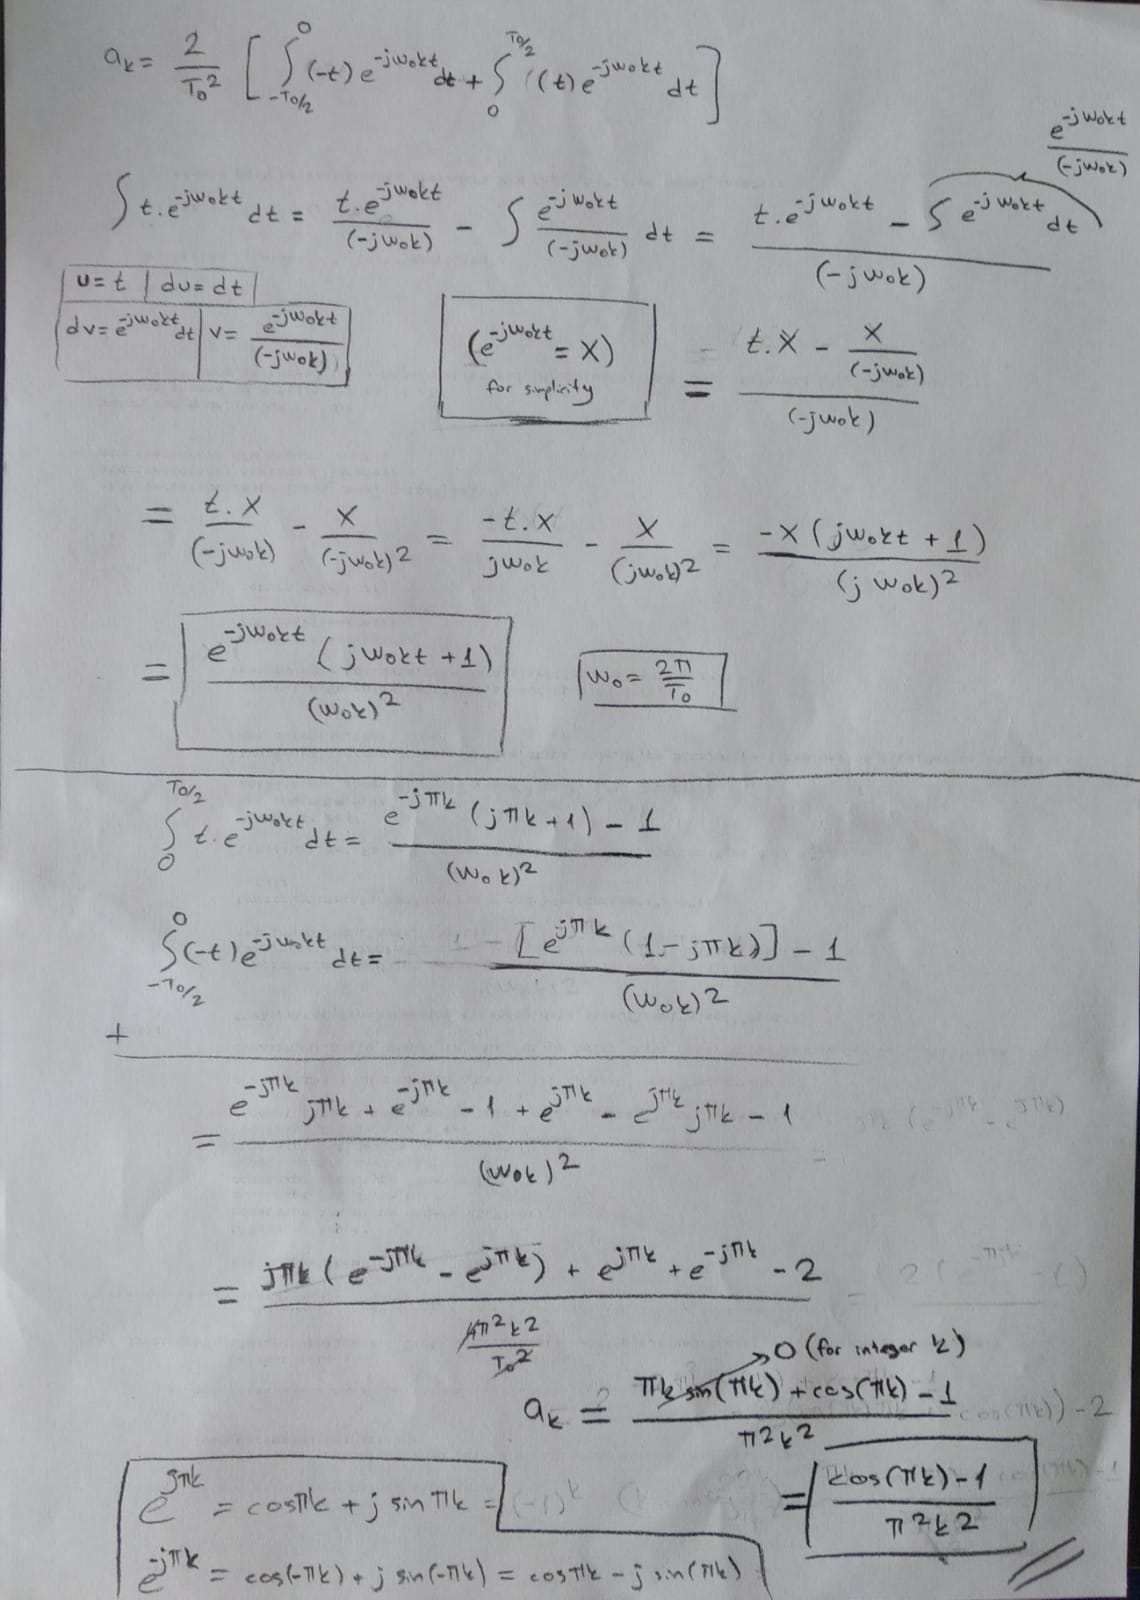 aₖ = 2/T₀² [ ∫_{-T₀/2}^{0} (-t) e^{-jw₀kt} dt + ∫_{0}^{T₀/2} (t) e^{-jw₀kt} dt ]
e^{-jw₀kt}/(-jw₀k)
∫ t.e^{-jw₀kt} dt = t.e^{-jw₀kt}/(-jw₀k) - ∫ e^{-jw₀kt}/(-jw₀k) dt = (t.e^{-jw₀kt} - ∫ e^{-jw₀kt} dt)/(-jw₀k)
u = t | du = dt
dv = e^{-jw₀kt} dt | v = e^{-jw₀kt}/(-jw₀k)
(e^{-jw₀kt} = x)
for simplicity
= (t.x - x/(-jw₀k))/(-jw₀k)
= t.x/(-jw₀k) - x/(-jw₀k)² = -t.x/jw₀k - x/(jw₀k)² = -x(jw₀kt + 1)/(jw₀k)²
= e^{-jw₀kt}(jw₀kt + 1)/(w₀k)²
w₀ = 2π/T₀
∫_{0}^{T₀/2} t.e^{-jw₀kt} dt = (e^{-jπk}(jπk+1) - 1)/(w₀k)²
∫_{-T₀/2}^{0} (-t)e^{-jw₀kt} dt = ([e^{jπk}(1-jπk)] - 1)/(w₀k)²
+
= (e^{-jπk} jπk + e^{-jπk} - 1 + e^{jπk} - e^{jπk} jπk - 1)/(w₀k)²
= (jπk(e^{-jπk} - e^{jπk}) + e^{jπk} + e^{-jπk} - 2)/(4π²k²/T₀²)
0 (for integer k)
aₖ = (πk sin(πk) + cos(πk) - 1)/π²k²
= (cos(πk) - 1)/π²k²
e^{jπk} = cosπk + j sinπk
e^{-jπk} = cos(-πk) + j sin(-πk) = cosπk - j sin(πk)